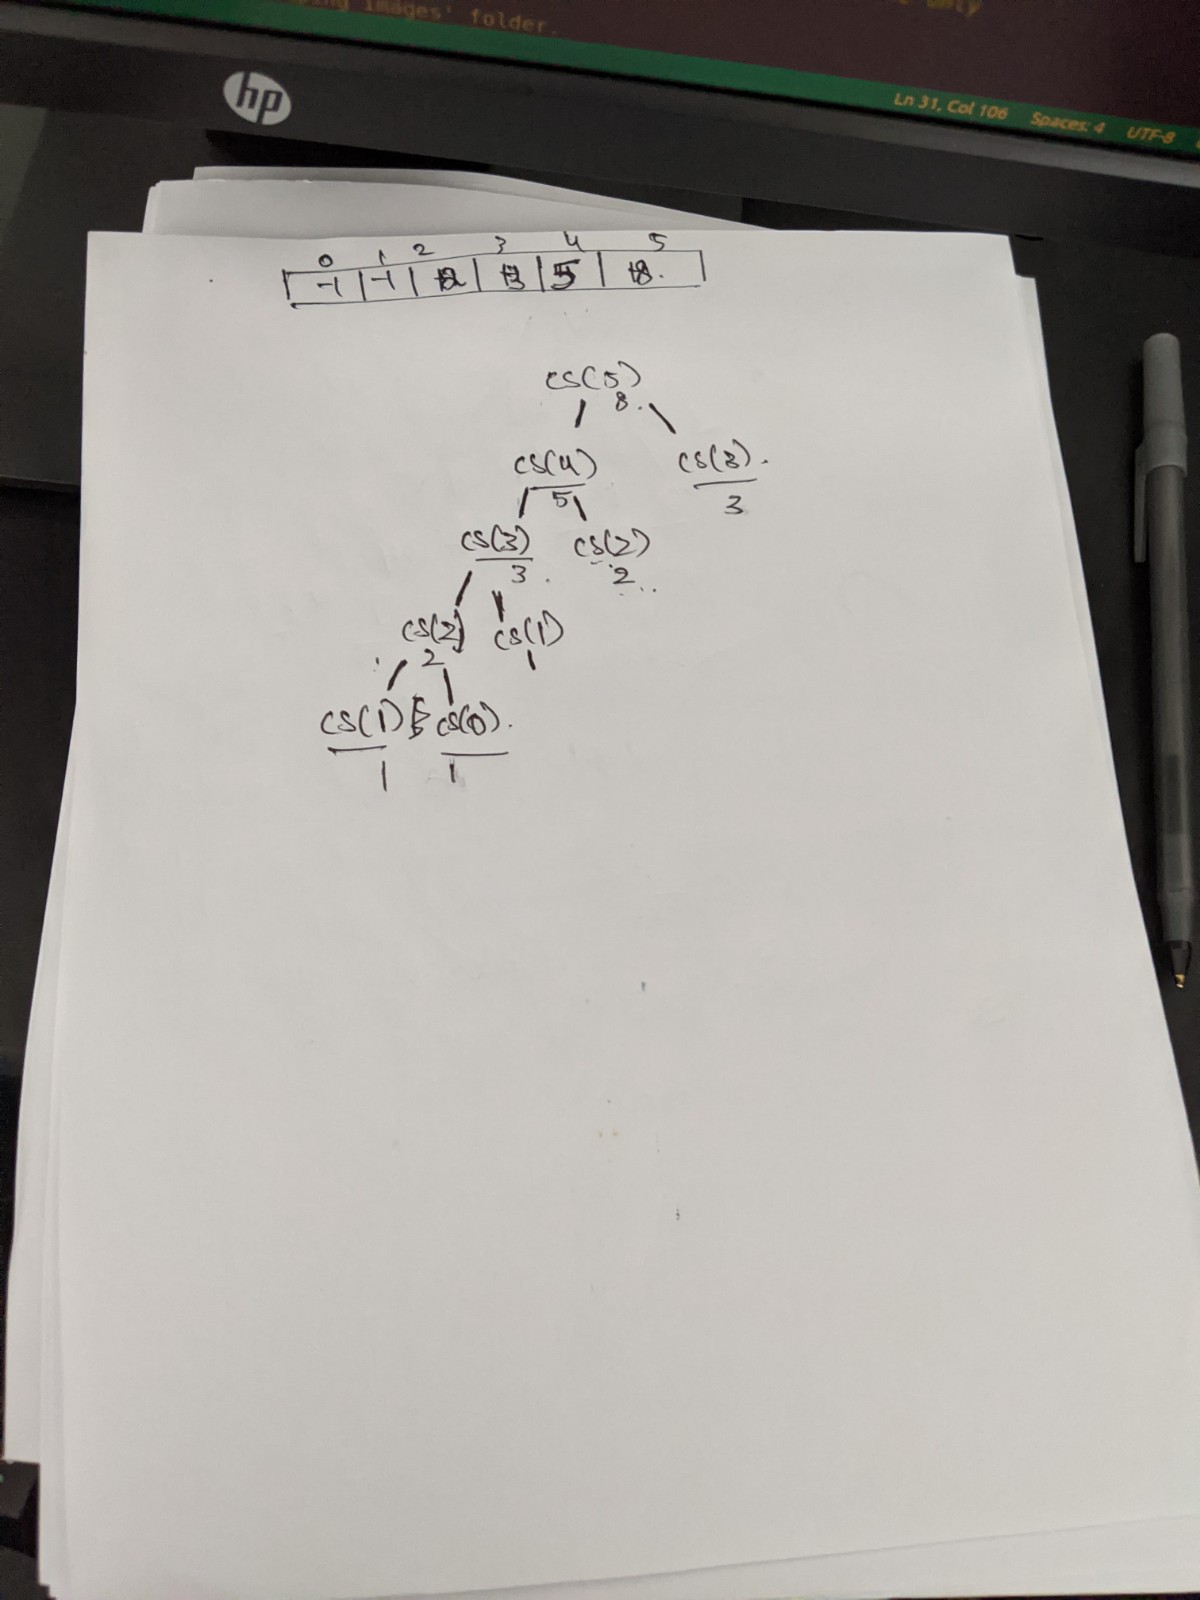 images' folder.
only
hp
Ln 31, Col 106 Spaces: 4 UTF-8
0 1 2 3 4 5
-1 -1 2 3 5 8.
cs(5)
8.
cs(4) cs(3).
5 3
cs(3) cs(2)
3. 2
cs(2) cs(1)
2 1
cs(1) cs(0).
1 1